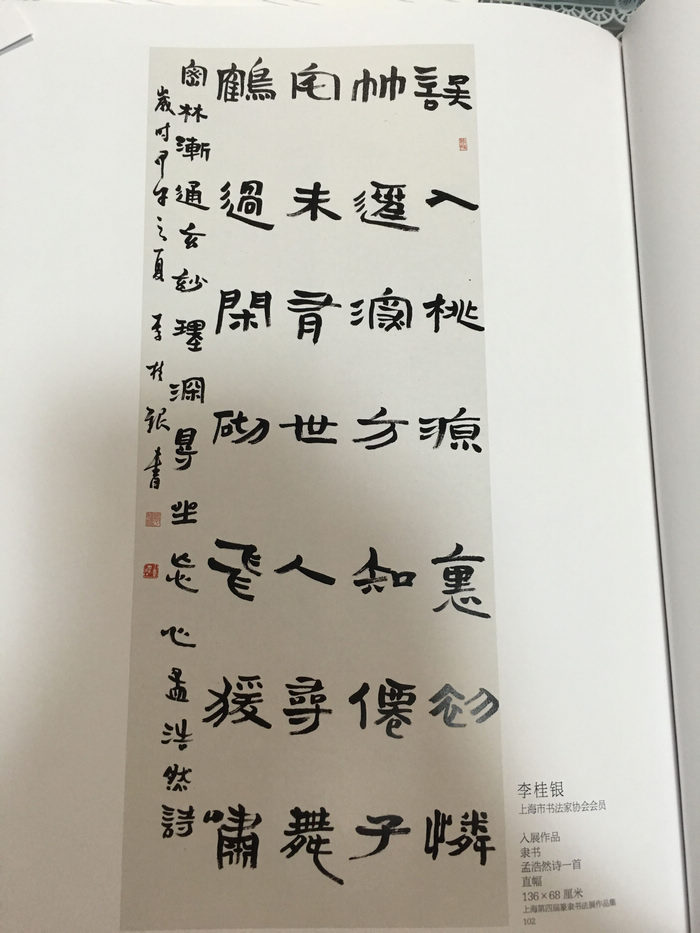 誤入桃源裏初憐
竹逕深方知僊子
宅未有世人尋舞
鶴過閑砌飛猨嘯
密林漸通玄玅理深㝵坐忘心孟浩然詩
歲时甲午之夏李桂銀書
李桂银
上海市书法家协会会员
入展作品
隶书
孟浩然诗一首
直幅
136×68 厘米
上海第四届篆隶书法展作品集
102